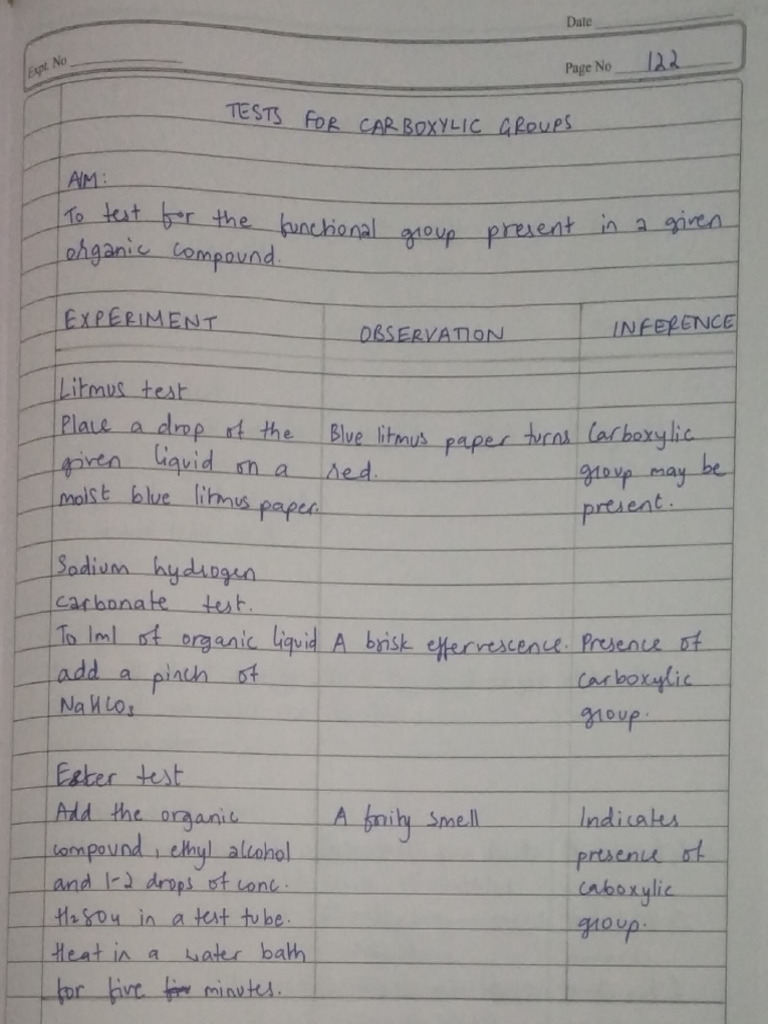 Date
Expt. No
Page No 122
TESTS FOR CARBOXYLIC GROUPS
AIM:
To test for the functional group present in a given
organic compound.
EXPERIMENT OBSERVATION INFERENCE
Litmus test
Place a drop of the Blue litmus paper turns Carboxylic
given liquid on a red. group may be
moist blue litmus paper. present.
Sodium hydrogen
carbonate test.
To 1ml of organic liquid A brisk effervescence. Presence of
add a pinch of carboxylic
NaHCO₃ group.
Ester test
Add the organic A fruity smell Indicates
compound, ethyl alcohol presence of
and 1-2 drops of conc. caboxylic
H₂SO₄ in a test tube. group.
Heat in a water bath
for five minutes.